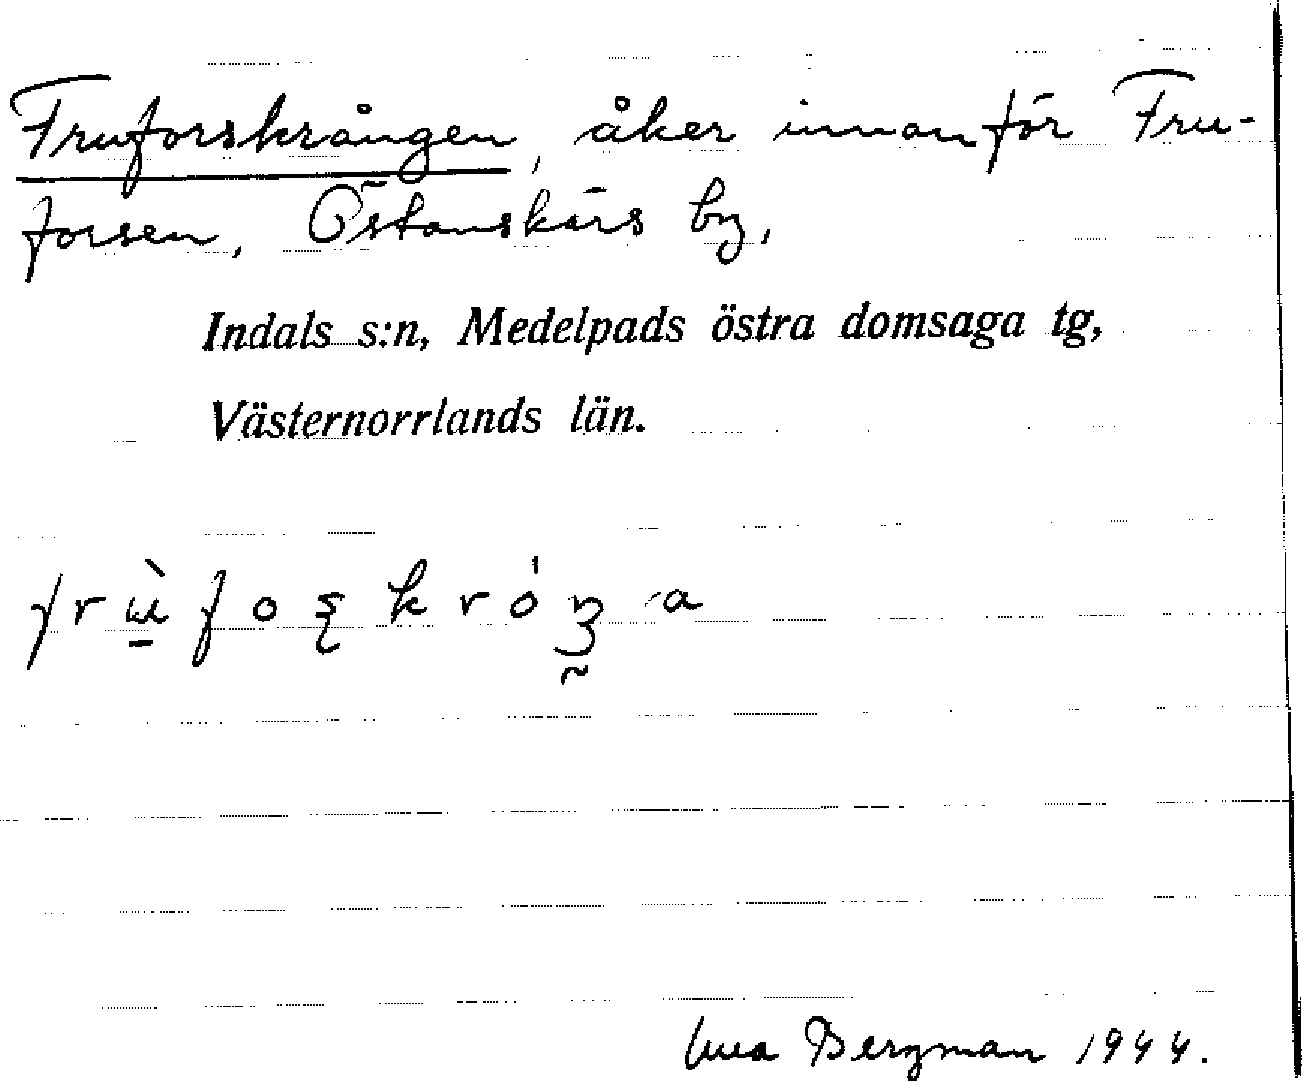 Fruforskrången, åker innanför Fru-
forsen, Östanskärs by,
Indals s:n, Medelpads östra domsaga tg,
Västernorrlands län.
Bergman 1944.